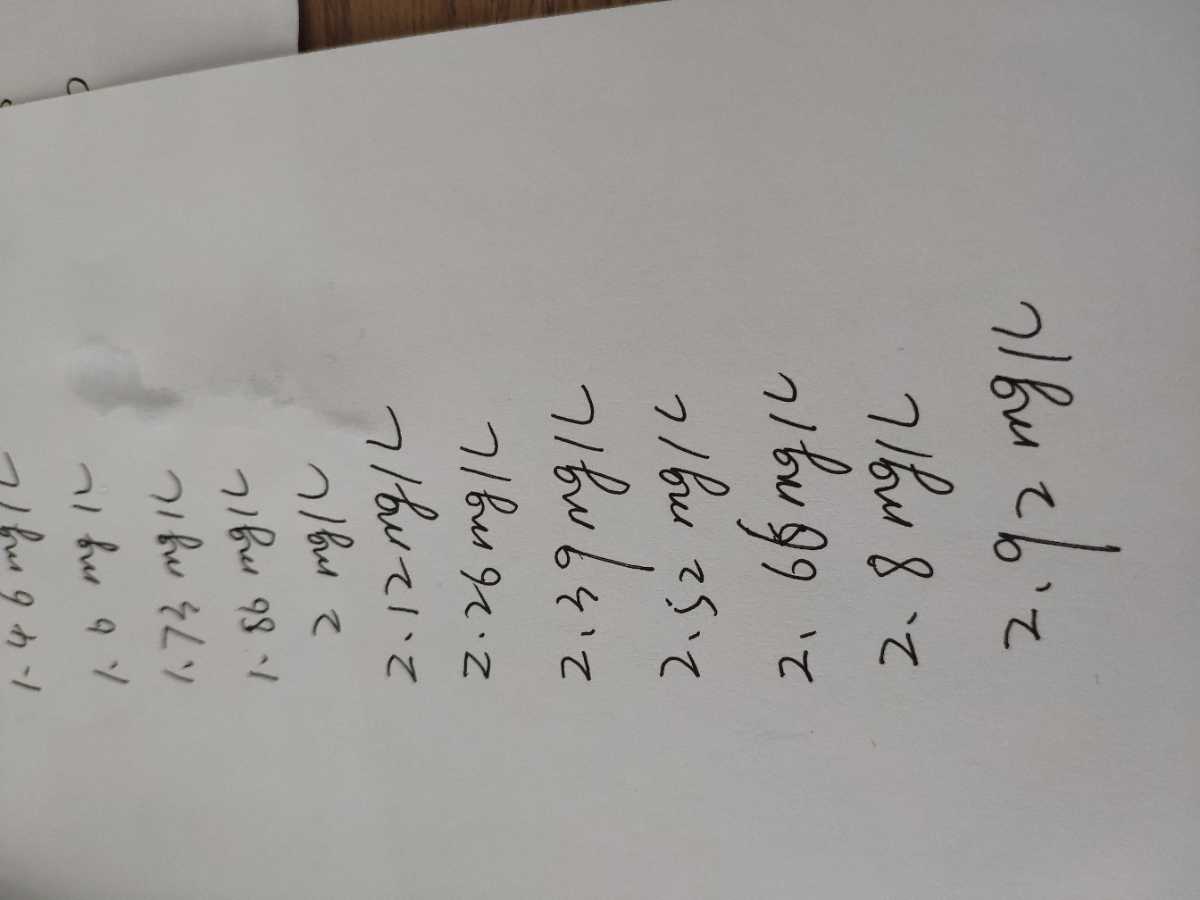 1.46 mg/L
1.6 mg/L
1.73 mg/L
1.86 mg/L
2 mg/L
2.12 mg/L
2.26 mg/L
2.39 mg/L
2.52 mg/L
mg/L
2.8 mg/L
2.92 mg/L